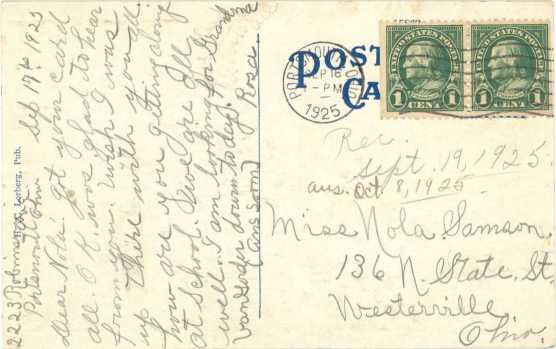 2223 Robinson Ave.
Portsmouth Ohio Sep 17th 1925
Dear Nola: Got your card
all O.K. was glad to hear
from you. Wish I was
up there with you all.
how are you getting along
at School. We are all
well. I am looking for Grandma
Vansandt down today.
(Ans Soon) Rosa
H. Lorberg, Pub.
POST
CA
PORTSMOUTH OHIO
SEP 18
PM
1925
UNITED STATES POSTAGE
1 CENT 1
UNITED STATES POSTAGE
1 CENT 1
Rec.
Sept. 19, 1925.
ans. Oct. 8, 1925
Miss Nola Samson
136 N. State. St
Westerville
Ohio.